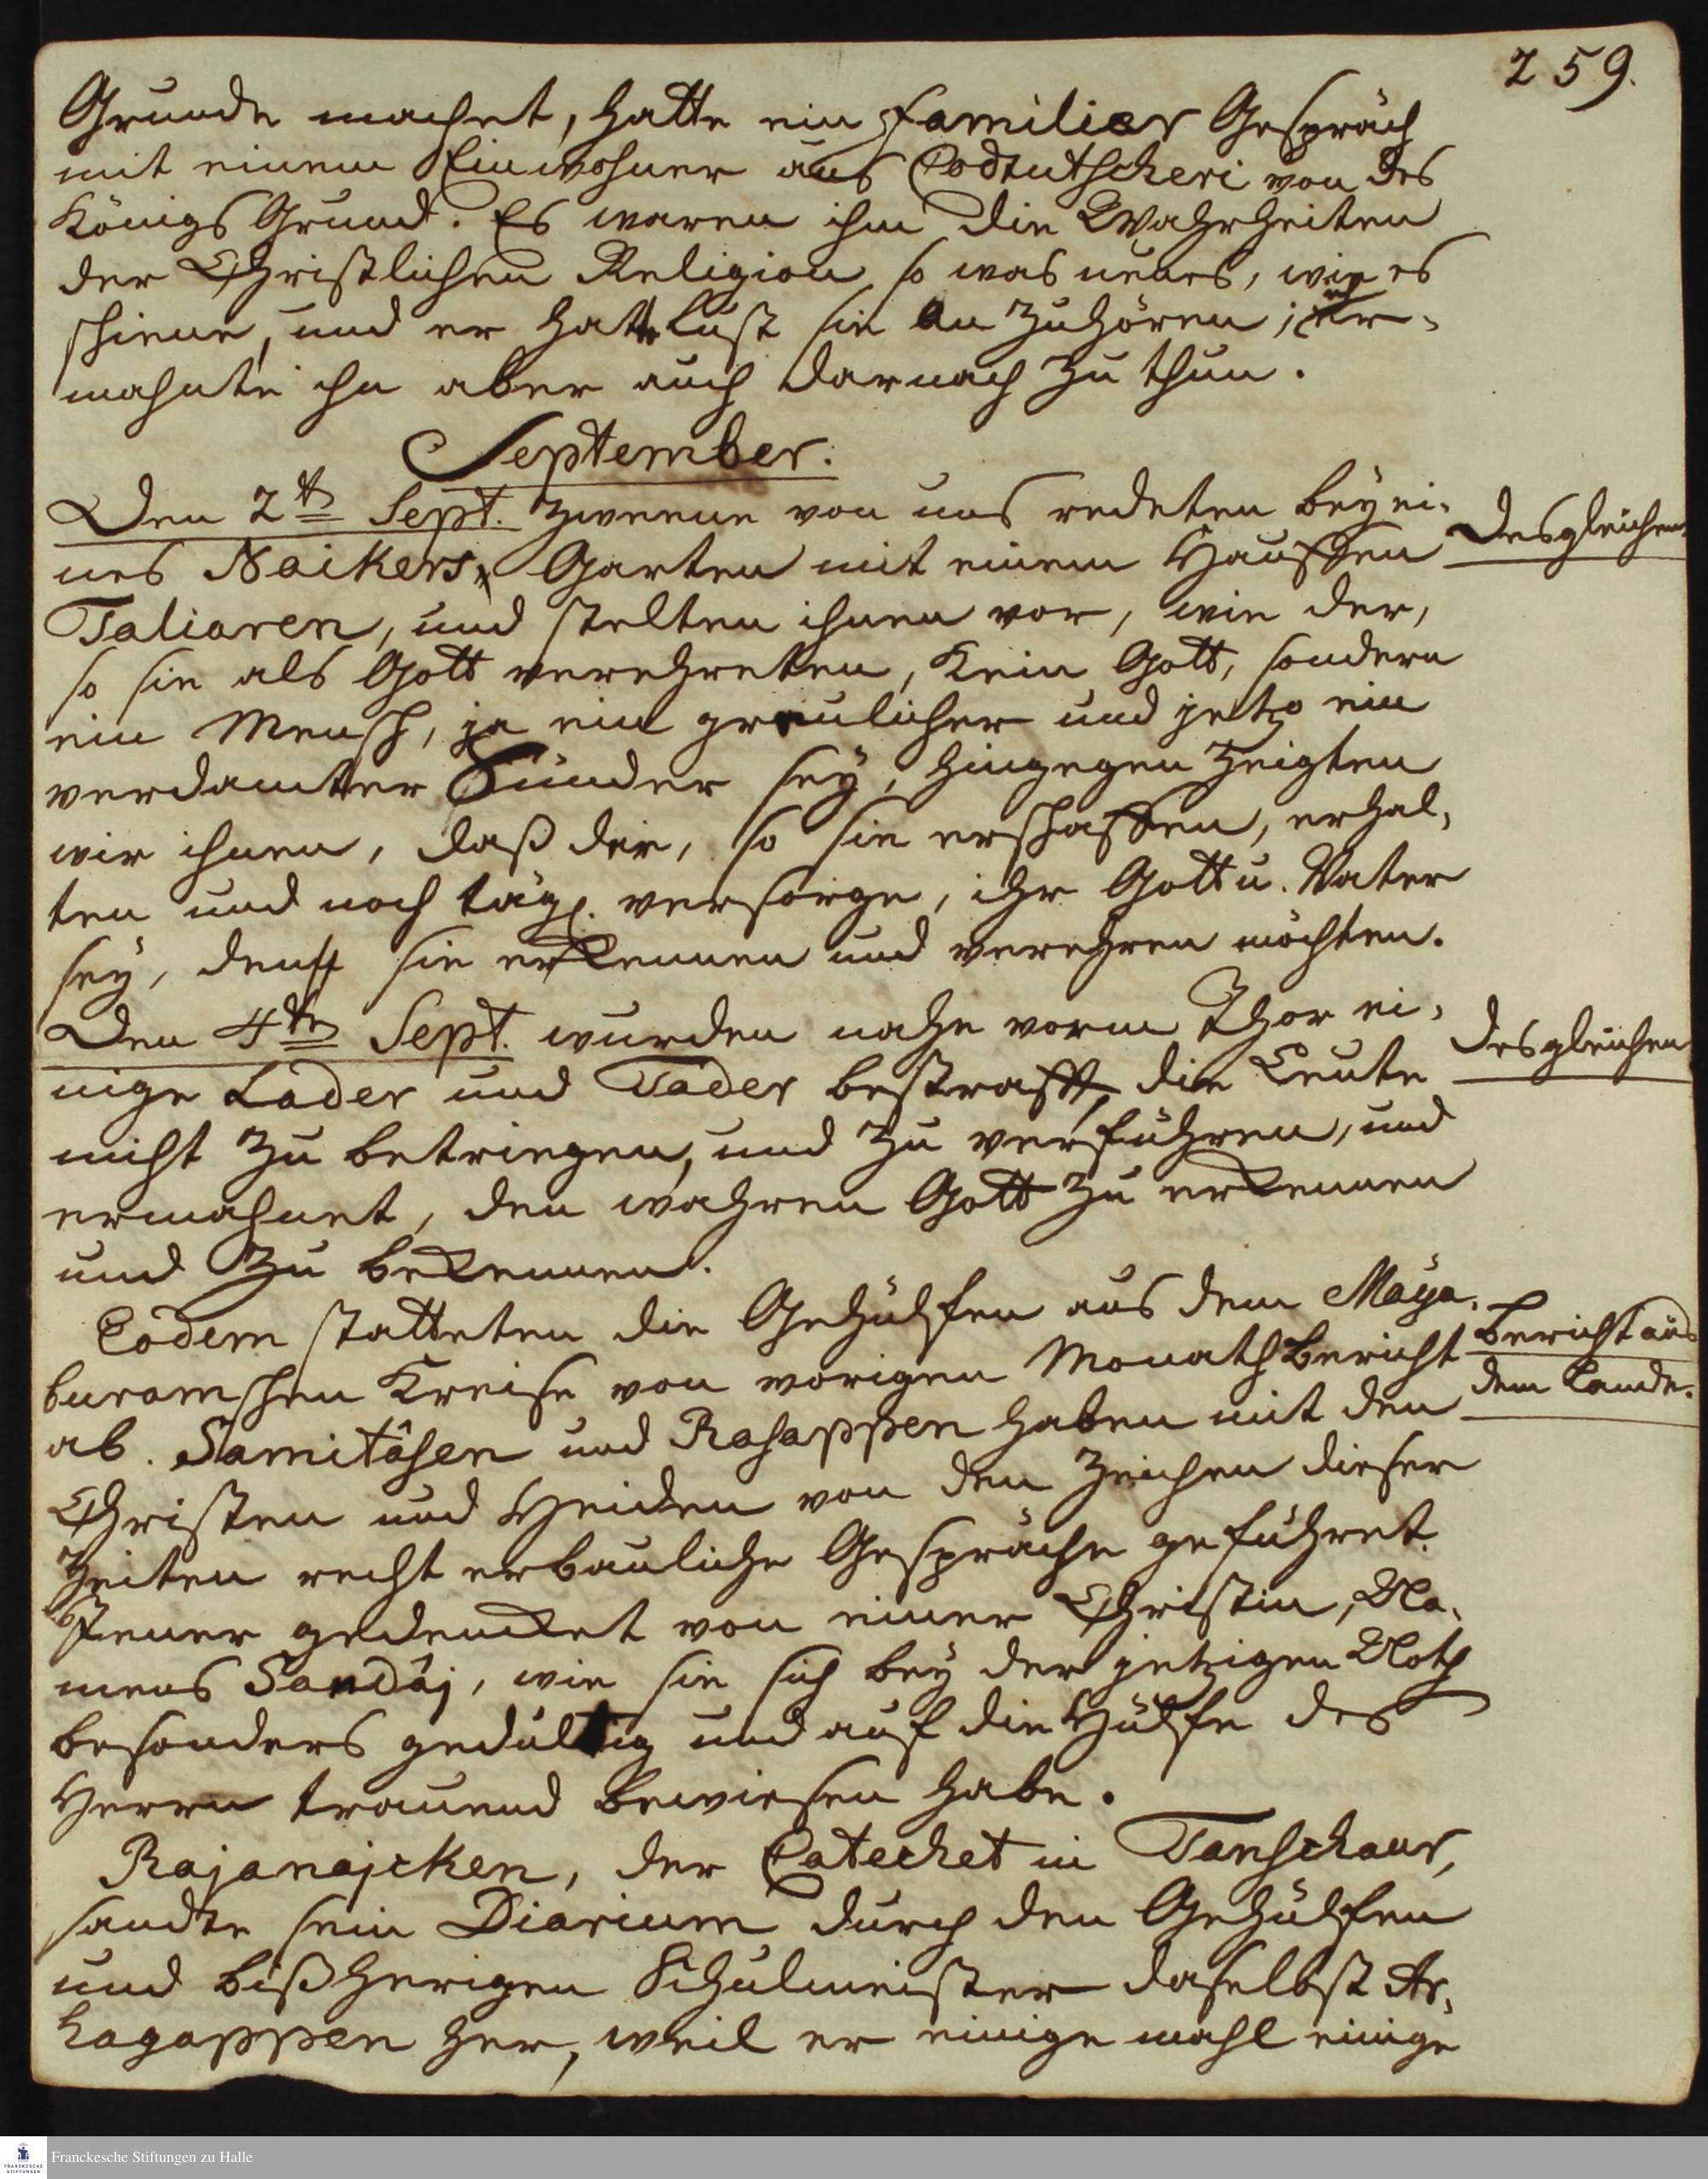 259.
Grunde machet, hatte ein familier Gespräch
mit einem Einwohner aus Podtutscheri von des
Königs Grund. Es waren ihm die Wahrheiten
der Christlichen Religion so was neues, wie es
schiene, und er hatte Lust sie an zuhören; er-
mahnte ihn aber auch darnach zu thun.
September.
Den 2ten Sept. Zweene von uns redeten bey ei-
Desgleichen
nes Naikers Garten mit einem Hauffen
Taliaren, und stelten ihnen vor, wie der,
so sie als Gott verehreten, kein Gott, sondern
ein Mensch, ja ein greulicher und jetzo ein
verdamter Sünder sey, hingegen zeigten
wir ihnen, daß der, so sie erschaffen, erhal-
ten und noch tägl. versorge, ihr Gott u. Vater
sey, den sie erkennen und verehren möchten.
Den 4ten Sept. wurden nahe vorm Thor ei-
desgleichen
nige Lader und Tader bestrafft, die Leute
nicht zu betriegen, und zu verführen, und
ermahnet, den wahren Gott zu erkennen
und zu bekennen.
Eodem statteten die Gehülfen aus dem Mäja-
Bericht aus
buramschen Kreise von vorigen Monath Bericht
dem Lande.
ab. Samitâsen und Rasappen haben mit den
Christen und Heiden von den Zeichen dieser
Zeiten recht erbauliche Gespräche geführet.
Jener gedencket von einer Christin, Na-
mens Sandâj, wie sie sich bey der jetzigen Noth
besonders gedultig und auf die Hülfe des
Herrn trauend bewiesen habe.
Rajanajcken, der Catechet in Tanschaur,
sandte sein Diarium durch den Gehülfen
und bißherigen Schulmeister daselbst Ar-
lagappen her, weil er einige mahl einige
Franckesche Stiftungen zu Halle